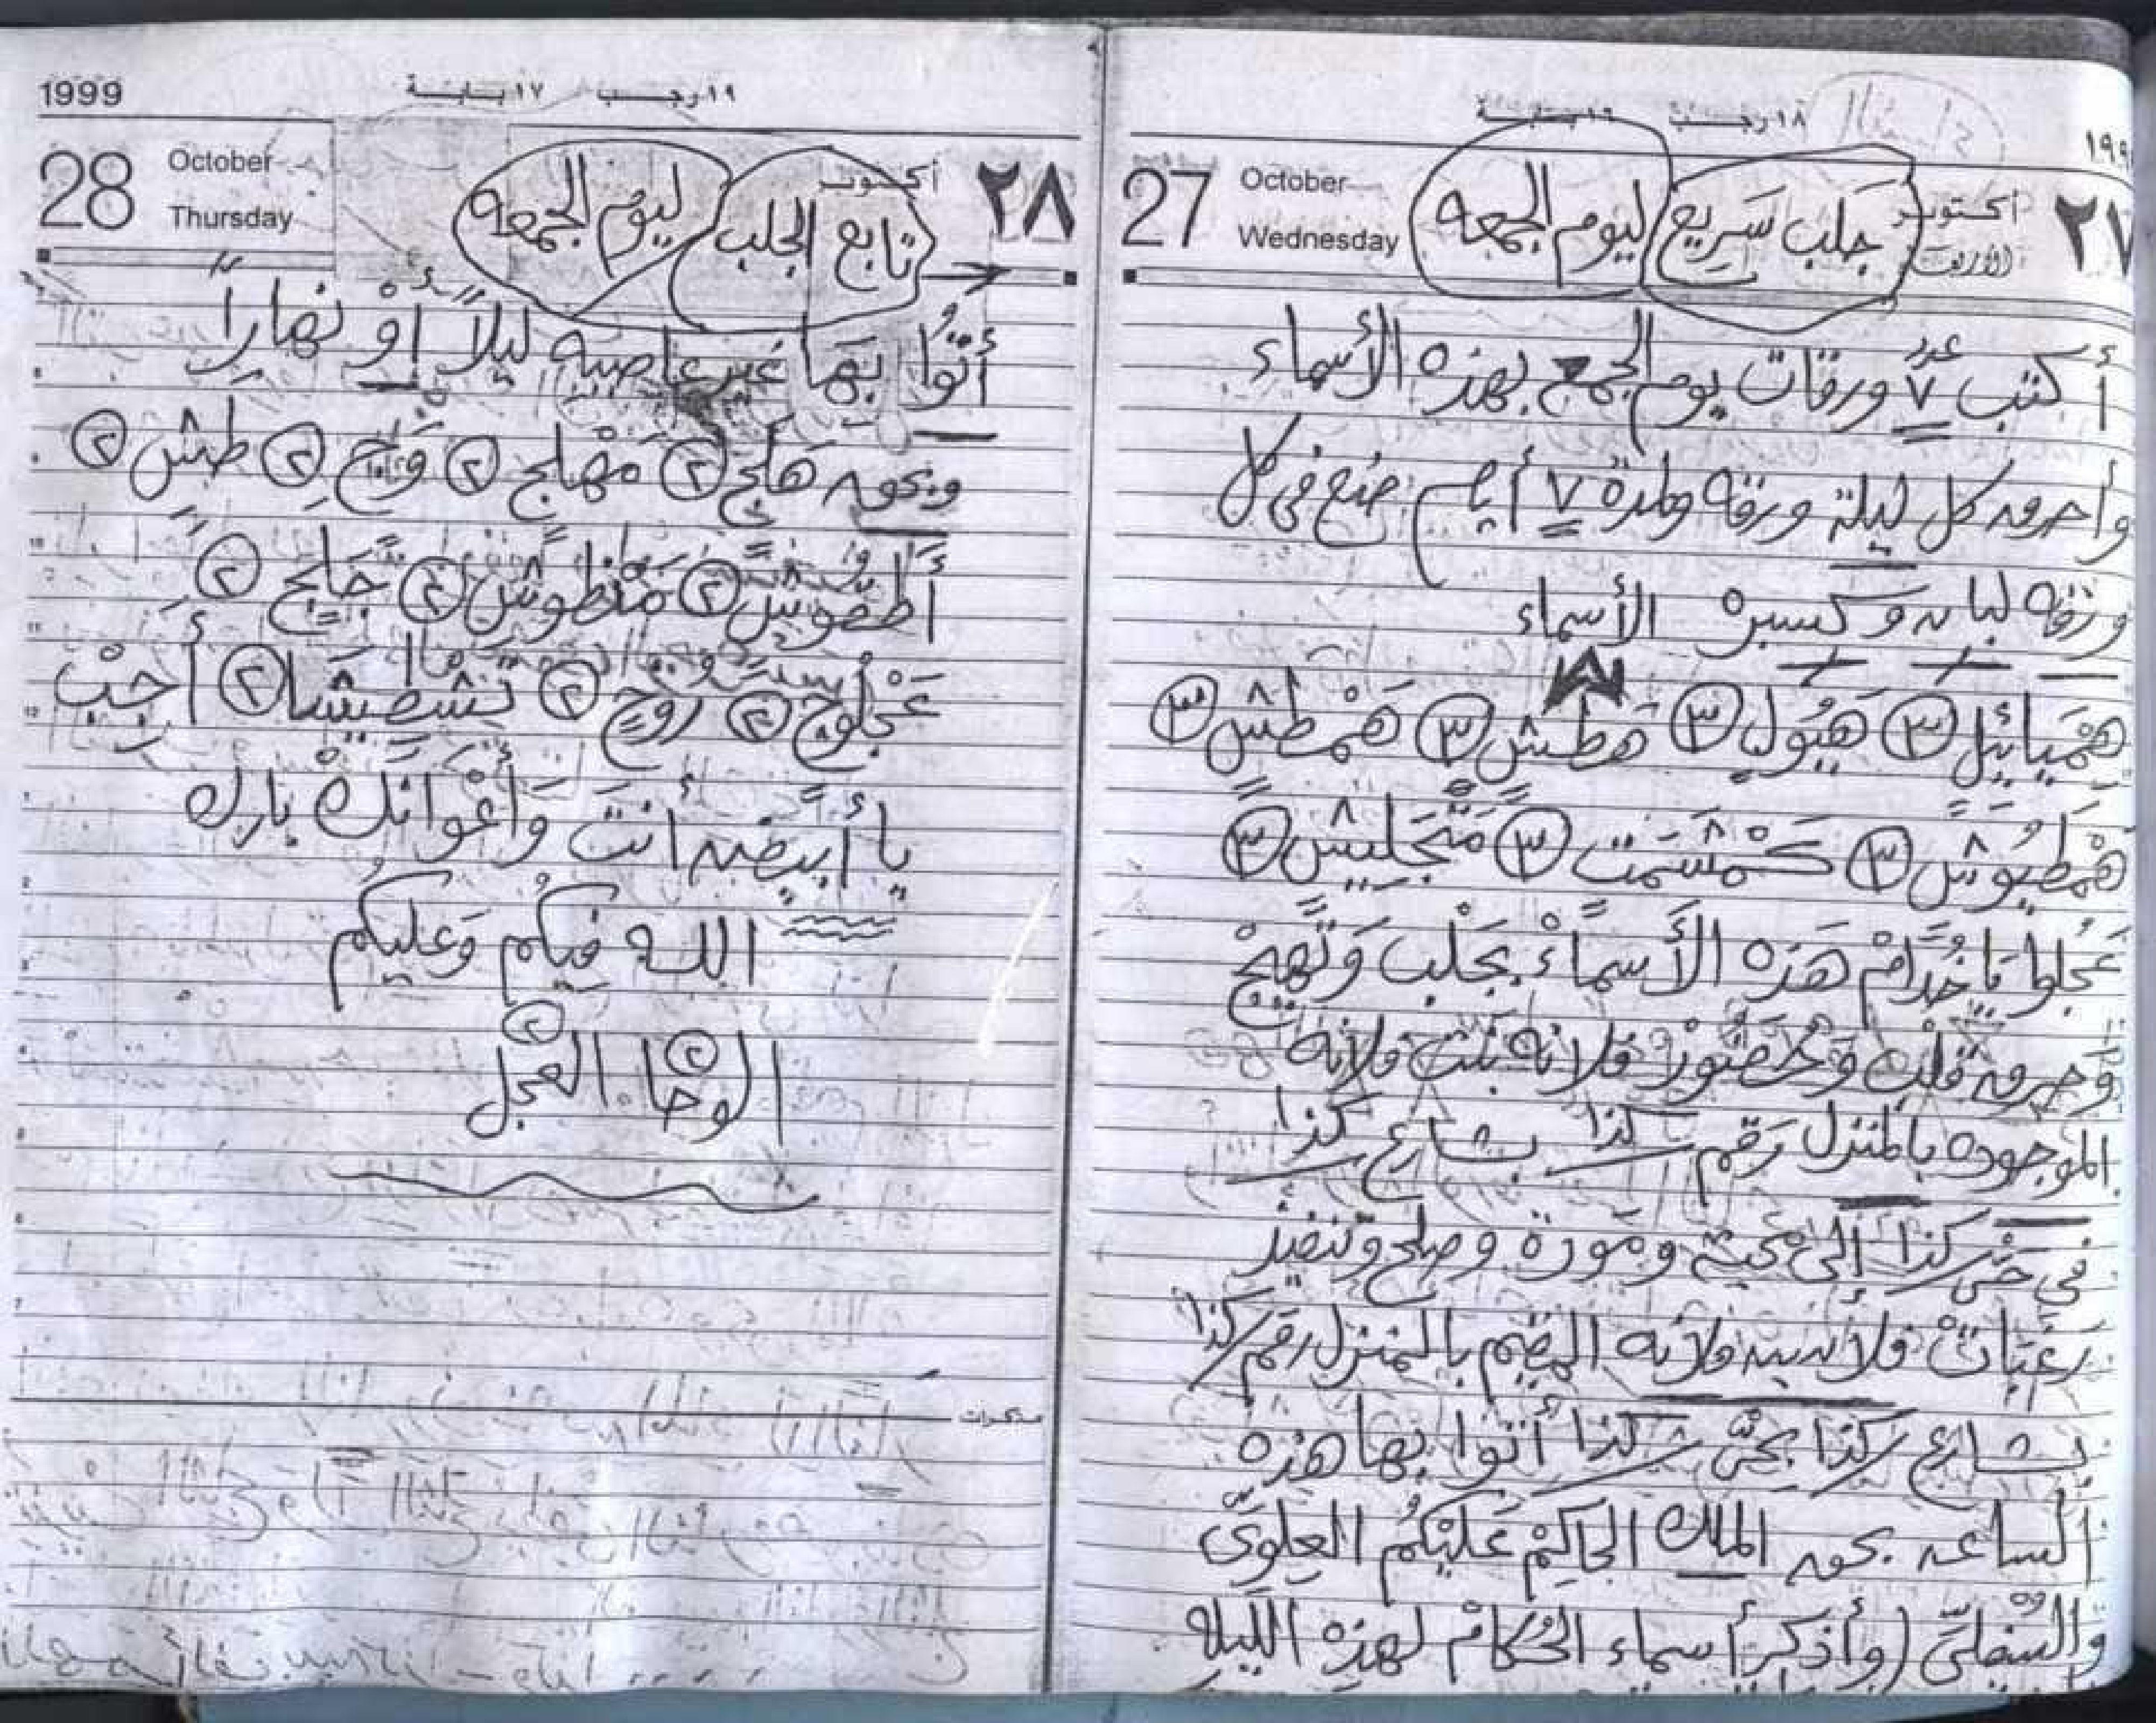 ١٨ رجب ١٦ بابة
١٩٩
27 October Wednesday أكتوبر الأربعاء ٢٧
جلب سريع ليوم الجمعه
أكتب عدد ٧ ورقات يوم الجمعه بهذه الأسماء
وأحرق كل ليلة ورقة ولمدة ٧ أيام ضع في كل
ورقه لبان وكسبره الأسماء
هميائيل ٣ هيول ٣ هطش ٣ همطش ٣
همطيوش ٣ كمشمت ٣ متجليش ٣
عجلوا يا خدام هذه الأسماء بجلب وتهيج
وحرق قلب وحضور فلانه بنت فلانه
الموجوده بالمنزل رقم كذا بشارع كذا
في حي كذا إلى محبة ومودة وصلح وتنفيذ
رغبات فلان بن فلانه المقيم بالمنزل رقم كذا
بشارع كذا بحي كذا أتوا بها هذه
الساعه بحق الملك الحاكم عليكم العلوي
والسفلي (وأذكر أسماء الحكام لهذه الليله
1999
١٩ رجب ١٧ بابة
28 October Thursday أكتوبر ٢٨
تابع الجلب ليوم الجمعه
أتوا بها غير عاصيه ليلاً أو نهاراً
وبحق هلج ٢ مهلج ٢ طش ٢
٢ ٢ جلج ٢
عجلوج ٢ روج ٢ ٢ أجب
يا أبيض أنت وأعوانك بارك
الله فيكم وعليكم
الوحا ٢ العجل ٢
مذكرات